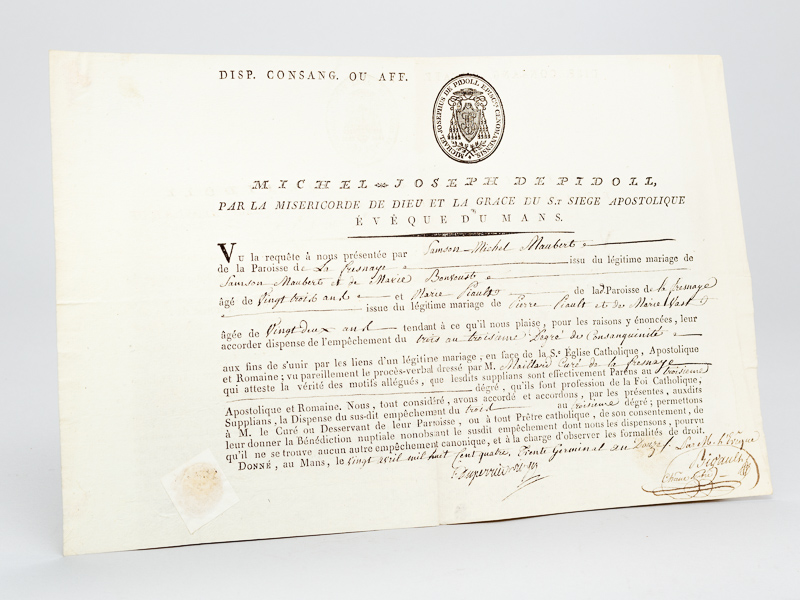 DISP. CONSANG. OU AFF.
MICHAEL JOSEPHUS DE PIDOLL EPISCPUS CENOMANENSIS
MICHEL-JOSEPH DE PIDOLL,
PAR LA MISERICORDE DE DIEU ET LA GRACE DU St SIEGE APOSTOLIQUE
ÉVÊQUE DU MANS.
Vu la requête à nous présentée par Samson-Michel Maubert
de la Paroisse de La fresnaye issu du légitime mariage de
Samson Maubert et de Marie Bonvouste
âgé de Vingt trois ans et Marie Piault de lad Paroisse de la fresnaye
issue du légitime mariage de Pierre Piault et de Marie Vast
âgée de Vingt deux ans tendant à ce qu'il nous plaise, pour les raisons y énoncées, leur
accorder dispense de l'empêchement du trois au troisieme Degré de Consanguinité
aux fins de s'unir par les liens d'un légitime mariage, en face de la Se Église Catholique, Apostolique
et Romaine; vu pareillement le procès-verbal dressé par M. Maillard Curé de la fresnaye
qui atteste la vérité des motifs allégués, que lesdits supplians sont effectivement Parens au troisieme
dégré, qu'ils font profession de la Foi Catholique,
Apostolique et Romaine. Nous, tout considéré, avons accordé et accordons, par les présentes, auxdits
Supplians, la Dispense du sus-dit empêchement du trois au troisieme dégré; permettons
à M. le Curé ou Desservant de leur Paroisse, ou à tout Prêtre catholique, de son consentement, de
leur donner la Bénédiction nuptiale nonobsant le susdit empêchement dont nous les dispensons, pourvu
qu'il ne se trouve aucun autre empêchement canonique, et à la charge d'observer les formalités de droit.
DONNÉ, au Mans, le vingt avril mil huit cent quatre. Trente Germinal an Douze. Par M. l'Evêque
Duperrier